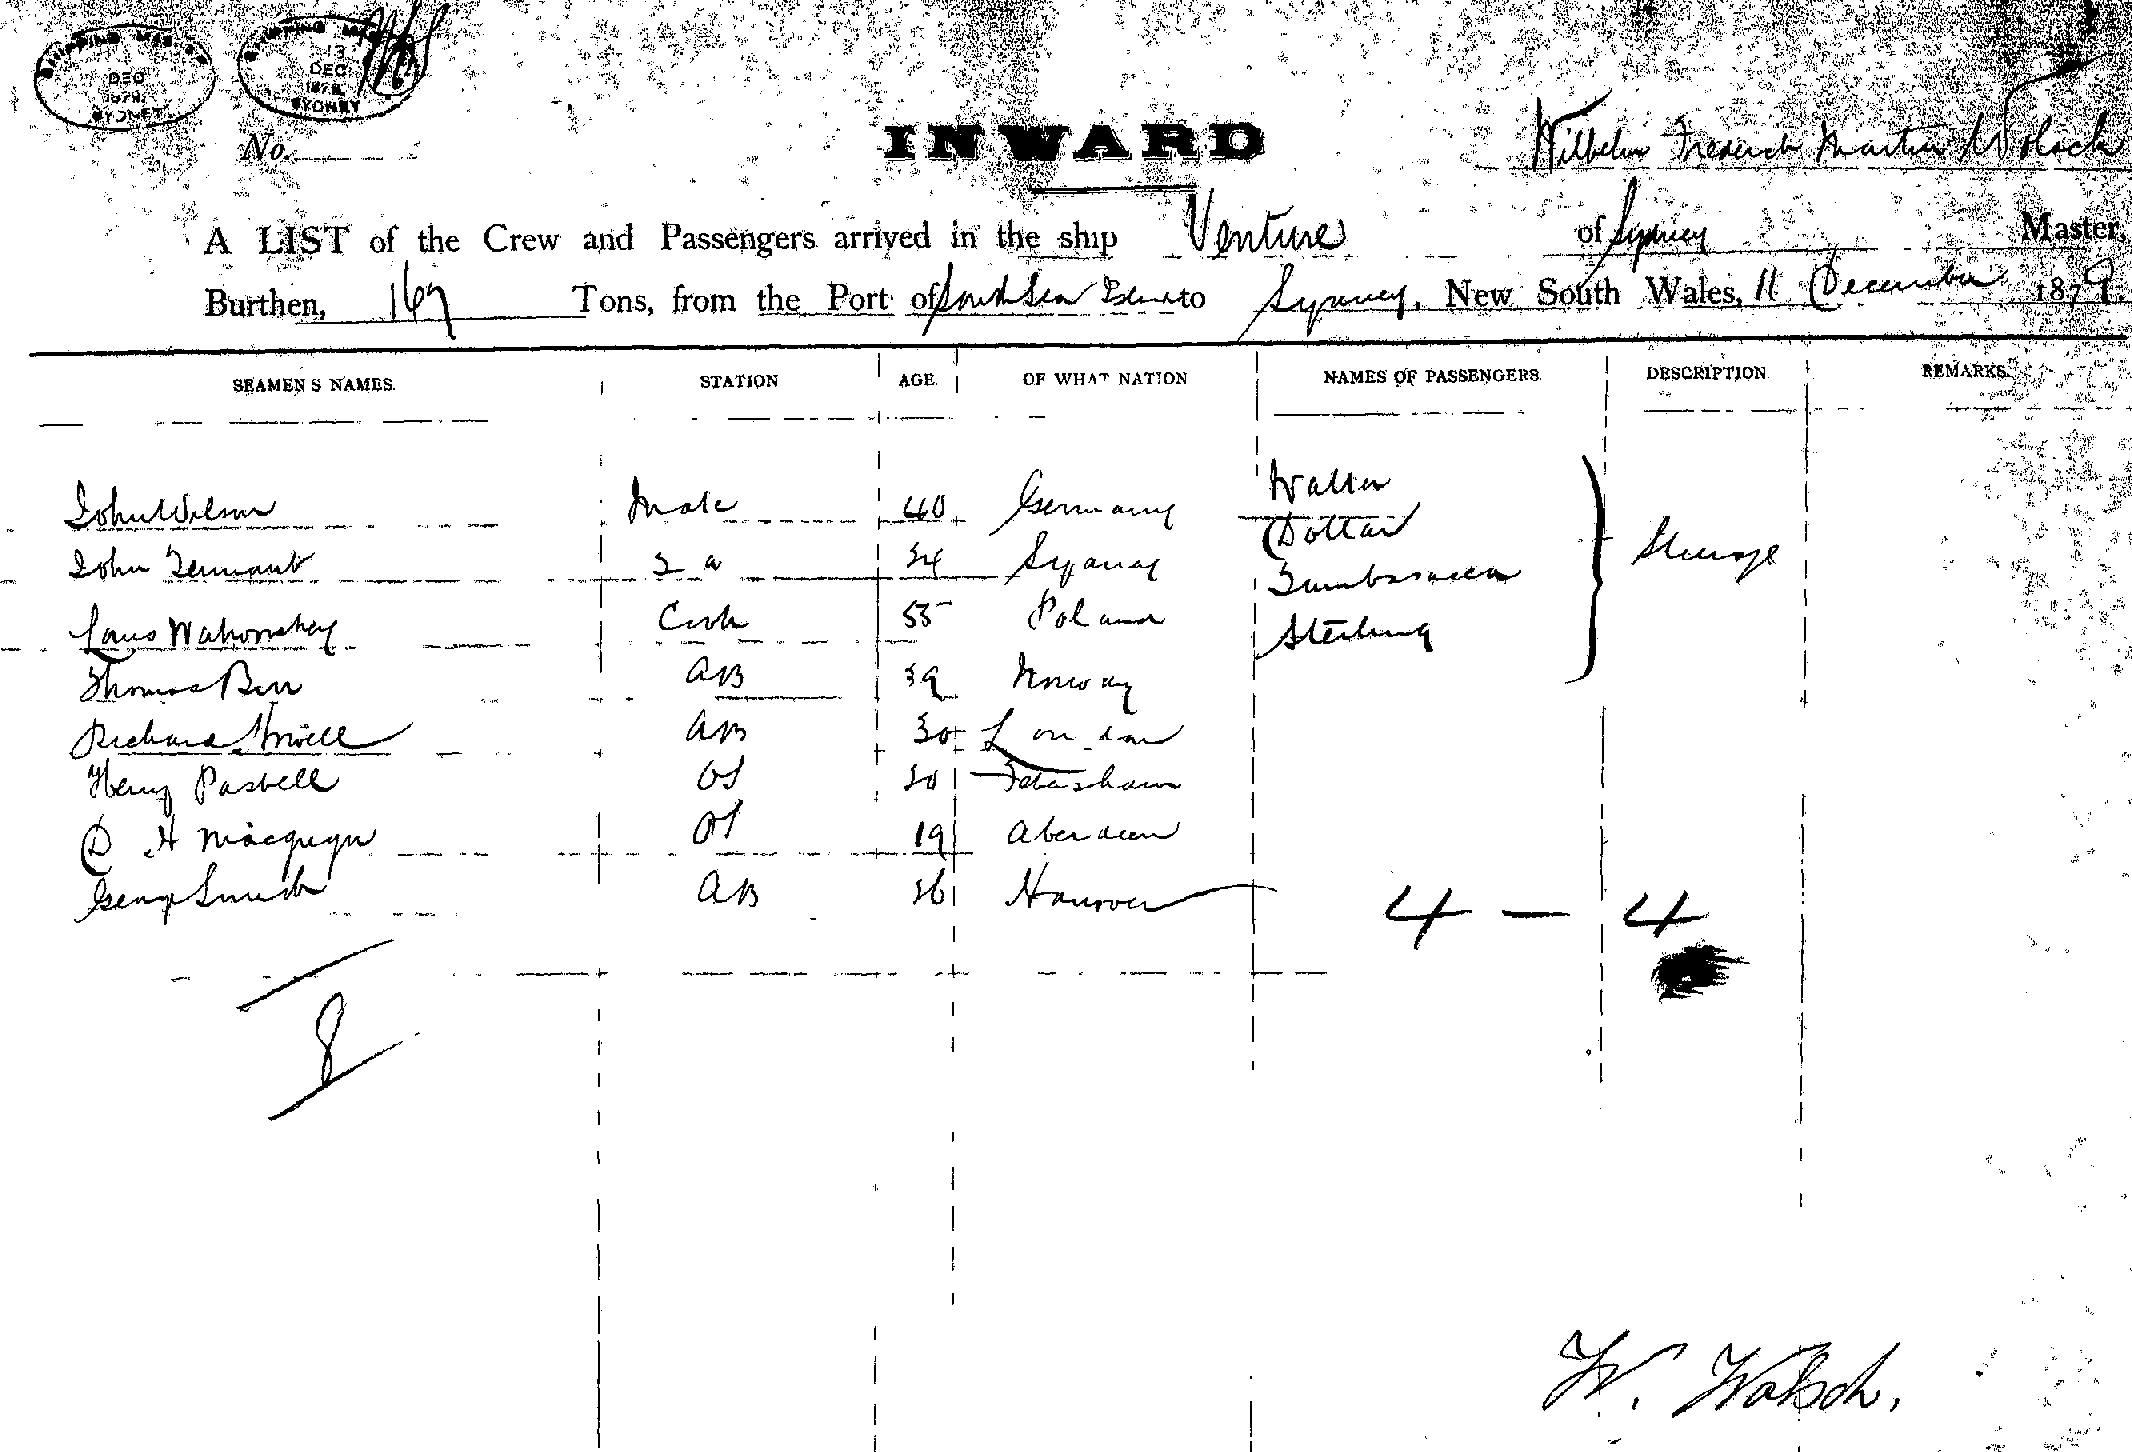 SHIPPING
DEC
1879
SYDNEY
SHIPPING
13
DEC
1879
SYDNEY
No.
INWARD
Wilhelm Frederick Martin Wolsch
A LIST of the Crew and Passengers arrived in the ship Venture of Sydney Master,
Burthen, 167 Tons, from the Port of South Sea to Sydney, New South Wales, 11 December 1879.
SEAMENS NAMES. STATION AGE. OF WHAT NATION NAMES OF PASSENGERS DESCRIPTION REMARKS.
John Wilson Mate 40 Germany Walter
John Tennant 34 Sydney Dottar
Louis Cook 55 Poland
Thomas AB 39 Norway Sterling
Steerage
Richard AB 30 London
Henry Pasbell OS 30
D H Macgregor OS 19 Aberdeen
George Smith AB 36 Hanover
4 — 4
8
W. Wolsch.